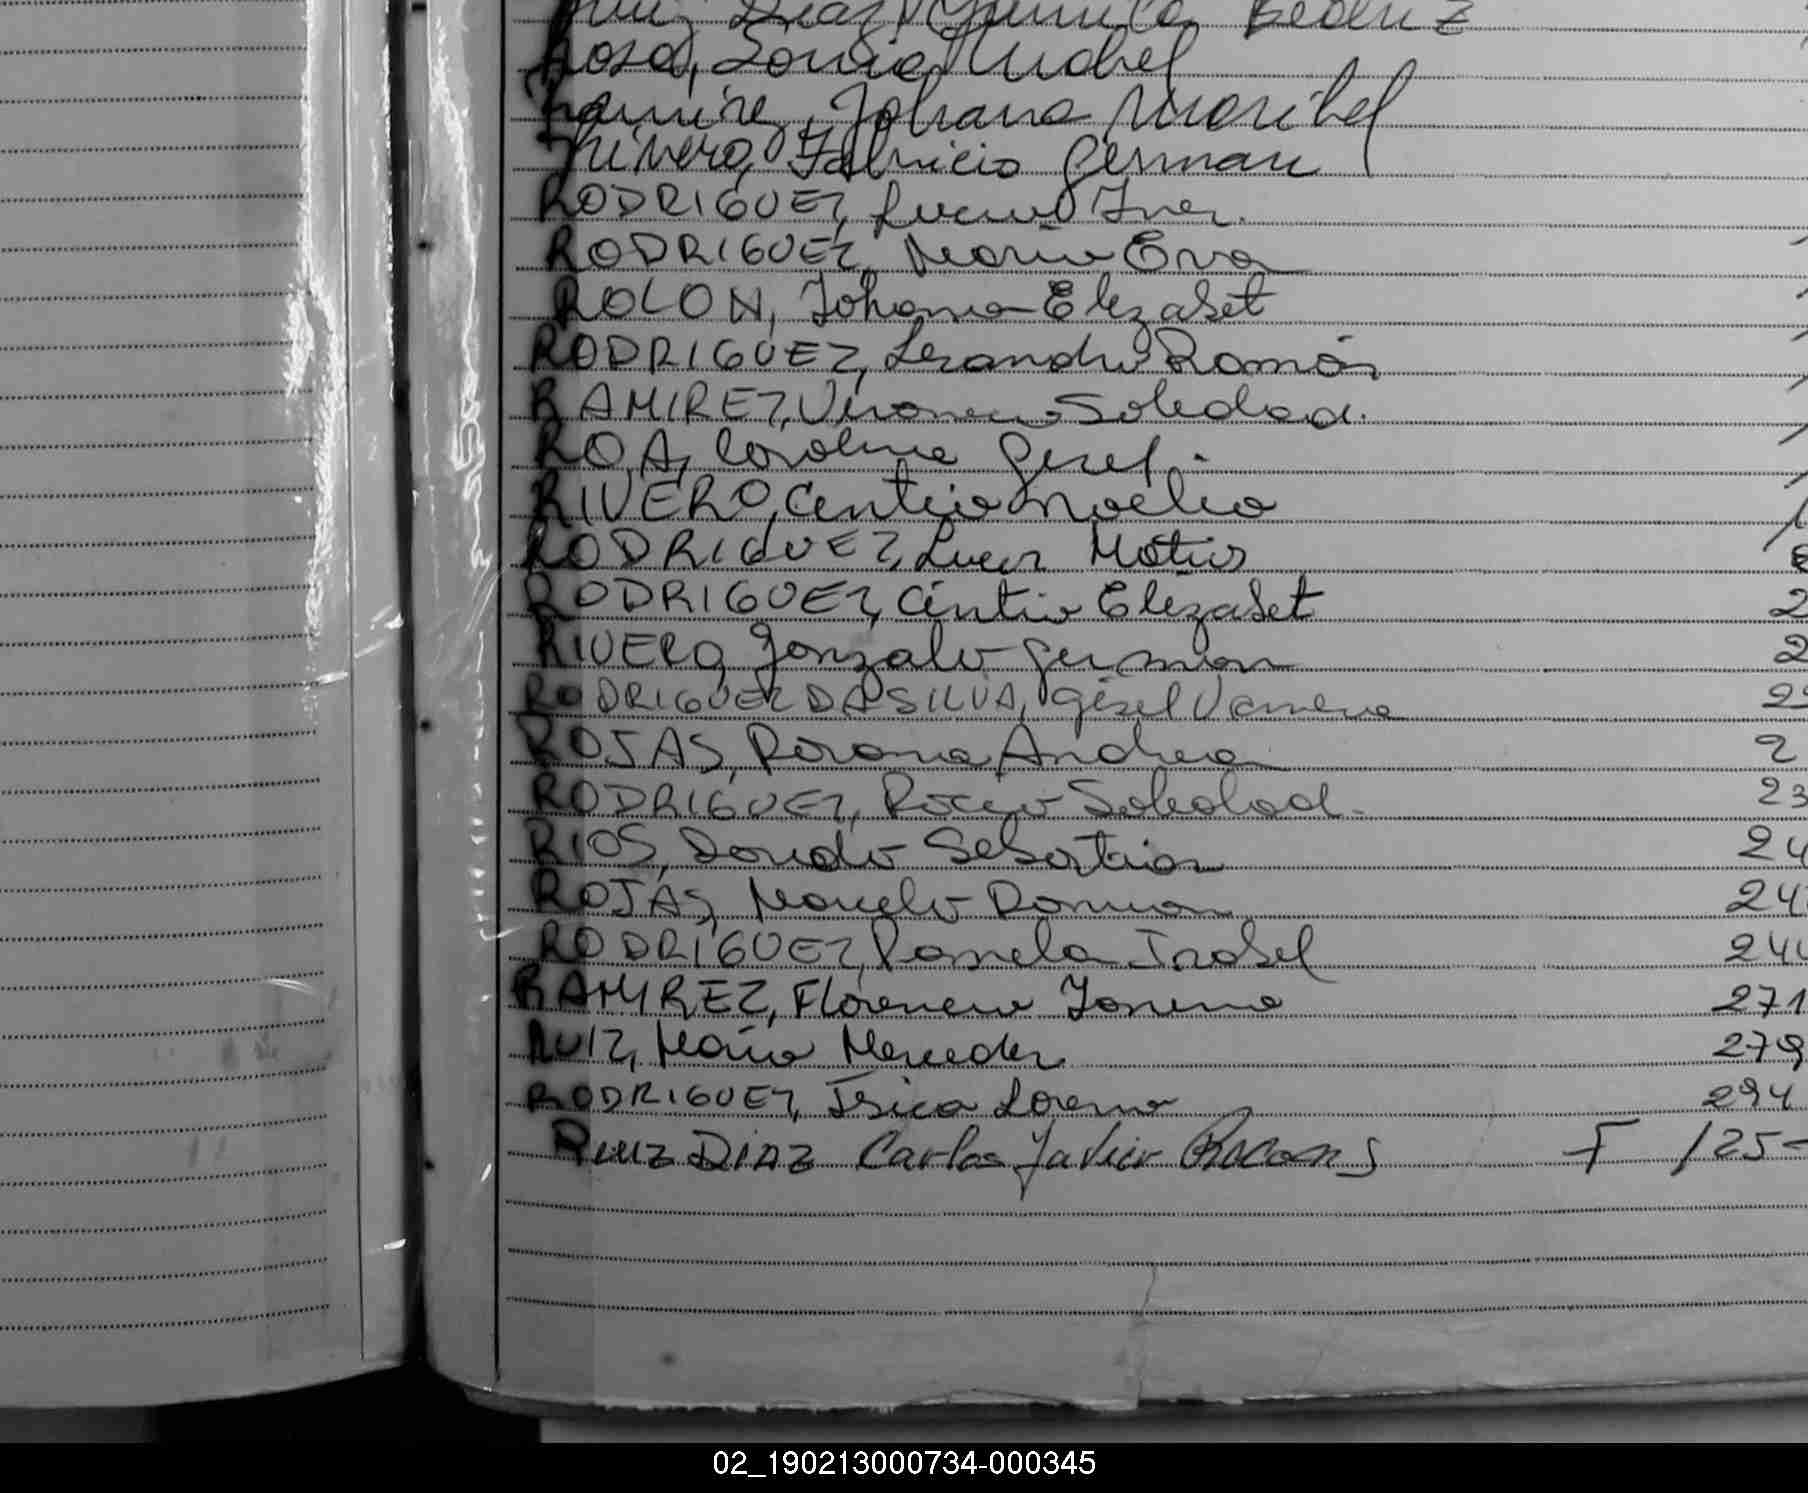 Ruiz Diaz, Yamila Beatriz
Rosa, Sonia Mabel
Ramirez, Johana Maribel
Rivero, Fabricio German
RODRIGUEZ, Iner.
RODRIGUEZ, Maria Eva
ROLON, Johana Elizabet
RODRIGUEZ, Leandro Román
RAMIREZ, Veronica Soledad.
ROA, Carolina Gisel.
RIVERO, Cintia Noelia
RODRIGUEZ, Lucas Matias
RODRIGUEZ, Cintia Elizabet 2
RIVERO, Gonzalo German 2
RODRIGUEZ DA SILVA, Gisel Vanesa 22
ROJAS, Rosana Andrea 2
RODRIGUEZ, Rocio Soledad. 23
RIOS, Sebastian 24
ROJAS, Marcelo Damian 24
RODRIGUEZ, Pamela Isabel 244
RAMIREZ, Florencia 271
RUIZ, Maria Mercedes 279
RODRIGUEZ, Jesica Lorena 294
Ruiz Diaz Carlos Javier F 125-
02_190213000734-000345